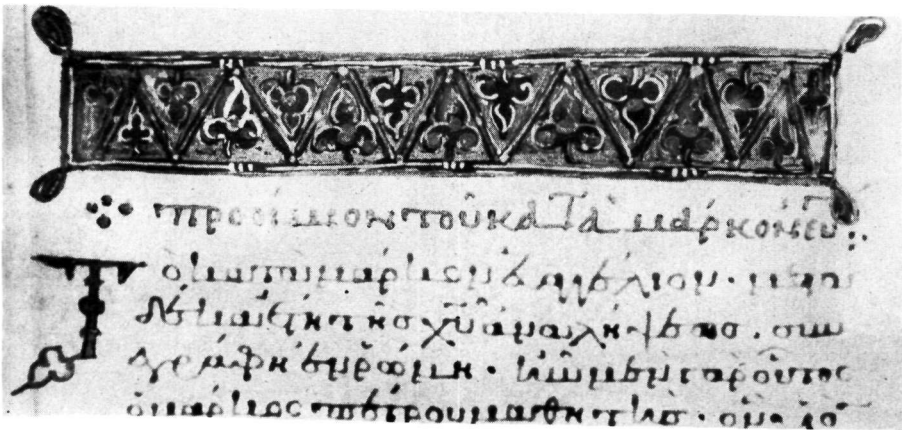 προοίμιον τοῦ κατὰ μάρκον εὐ
Τὸ κατὰ μάρκον εὐαγγέλιον· μετὰ
δέκα ἔτη τῆς χῦ ἀναλήψεως. συν
εγράφη ἐν ῥώμη· ἦν μὲν γὰρ οὗτος
ὁ μάρκος πέτρου μαθητὴς·